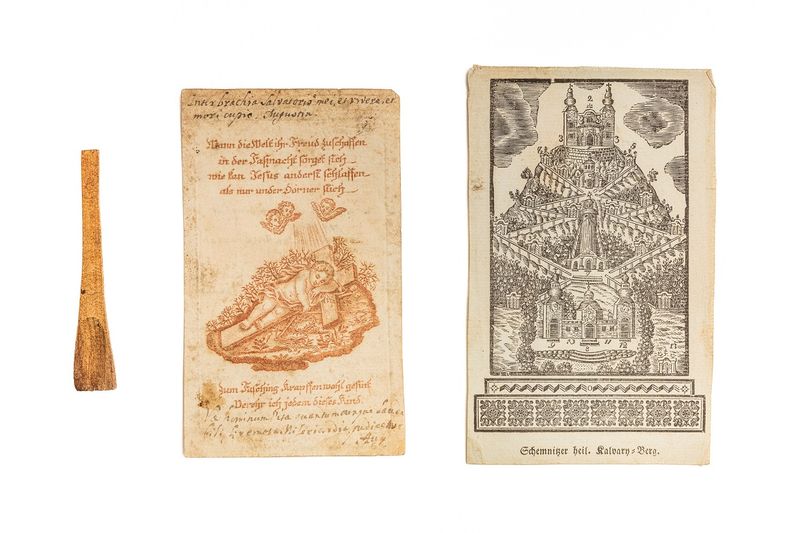 Inter brachia Salvatoris mei, et vivere, et
mori cupio. Augustin.
Wann die Welt ihr Freud zuschaffen
in der Fasnacht sorget sich
wie kan Jesus anderst schlaffen
als nur under Dörner stich
zum Fasching Krapffen wohl
Verehr ich jedem dieses Kind.
Aug
2
3
5
9
11
8
10
12
Schemnitzer heil. Kalvary-Berg.